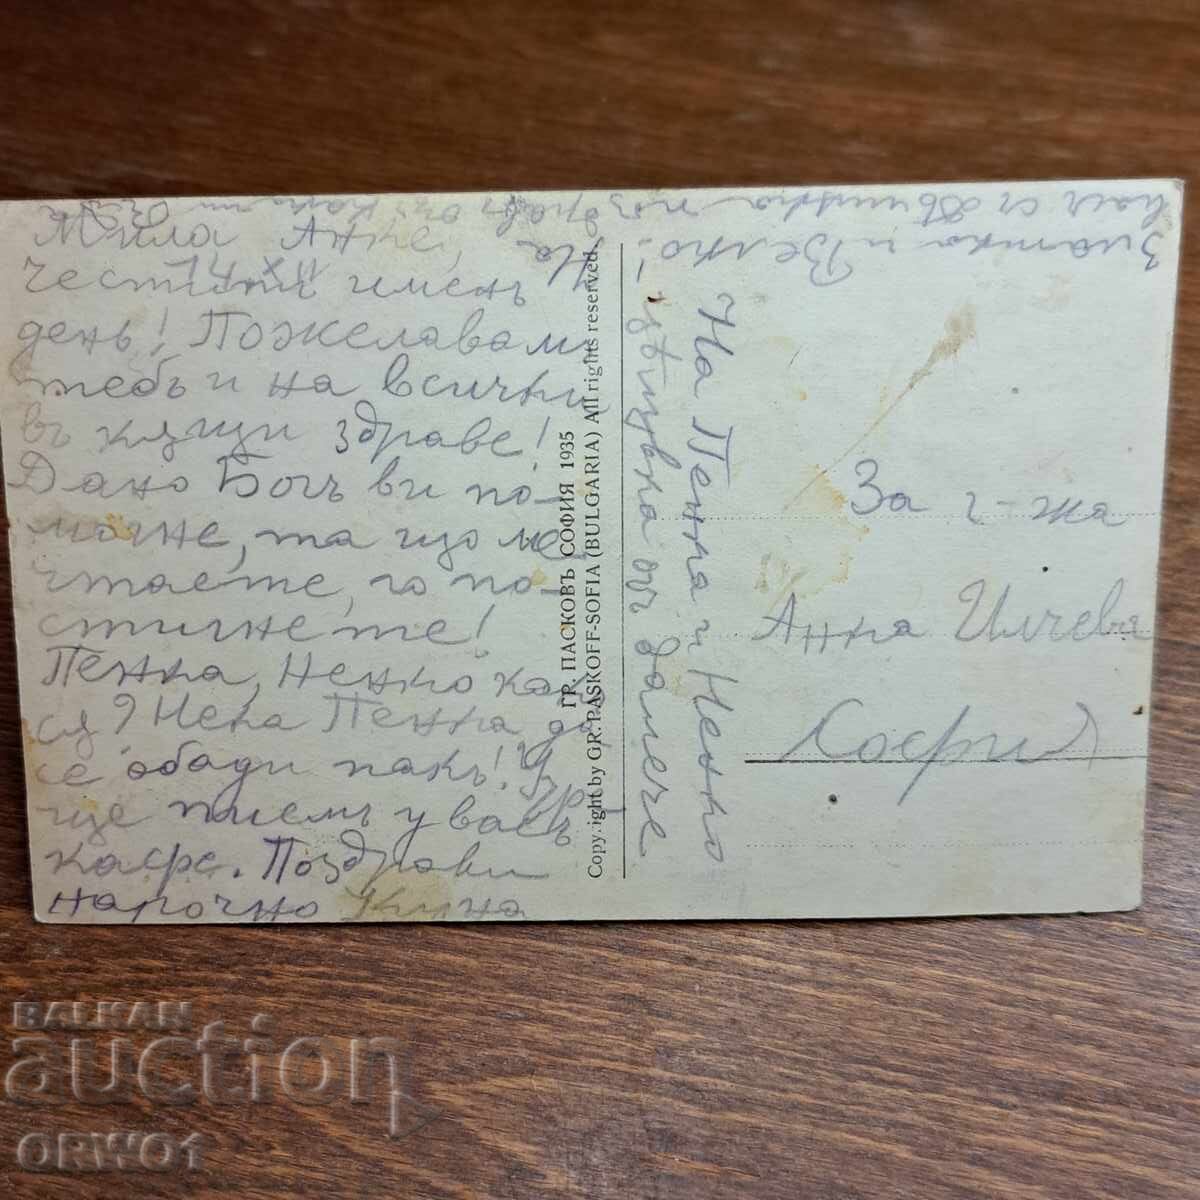 Мила Анче,
честитъ именъ
день! Пожелавамъ
тебъ и на всички
въ кящи здраве!
Дано Богъ ви по-
могне, та що ме-
чтаете, го по-
стигнете!
Пенка, Ненко како
сѫ? Нека Пенка да
се обади пакъ!
ще пиемъ у васъ
кафе. Поздрави
нарочно
На Пенка и Ненко
цѣлувка отъ далече
Златка и Велко!
поздравъ отъ
ГР. ПАСКОВЪ СОФИЯ 1935
Copyright by GR. PASKOFF-SOFIA (BULGARIA) All rights reserved.
За г-жа
Анка Илчева
София
BALKAN
auction
ORWO1